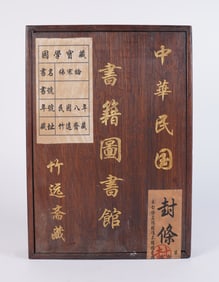 中華民国
書籍圖書館
竹远斋藏
國學寶藏
書名
書號
年號
藏址
民國八年
竹遠齋藏
封條